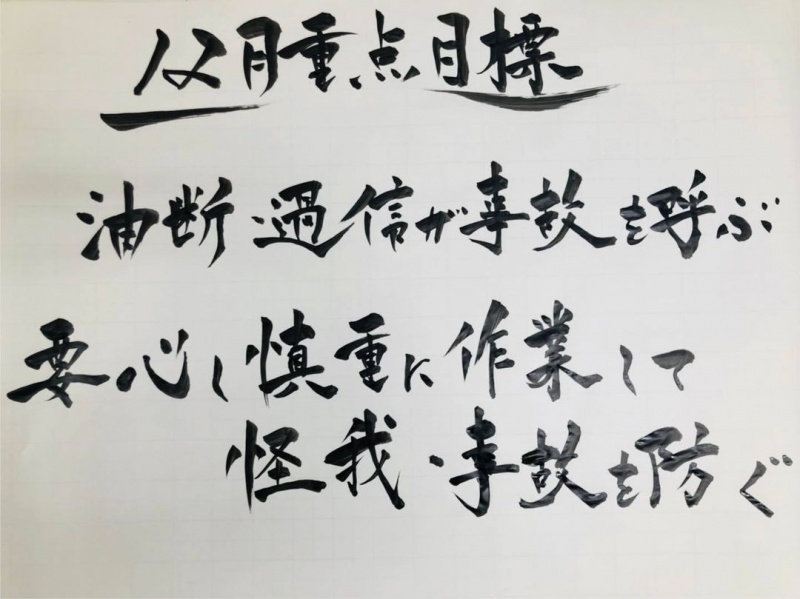 12月重点目標
油断 過信が事故を呼ぶ
要心し慎重に作業して
怪我・事故を防ぐ